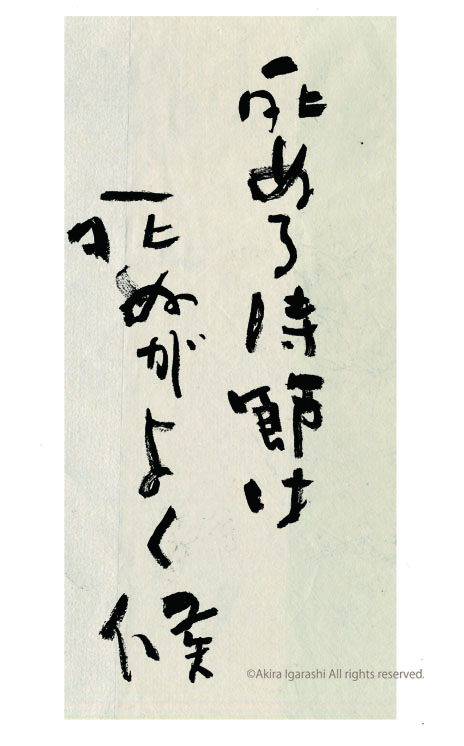 死ぬる時節は
死ぬがよく候
©Akira Igarashi All rights reserved.